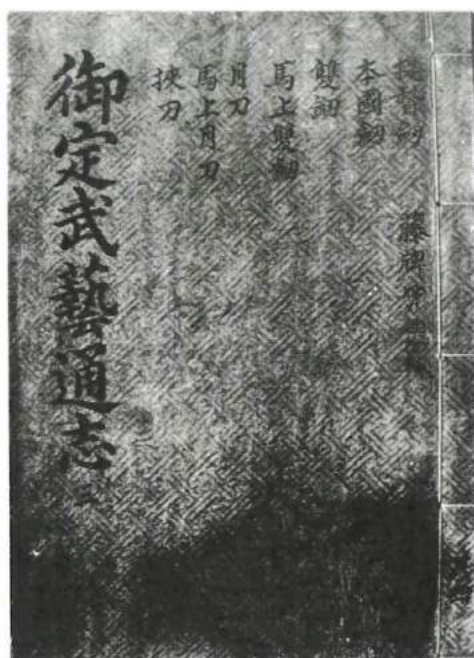 提督劒 藤牌
本國劒
雙劒
馬上雙劒
月刀
馬上月刀
挾刀
御定武藝通志